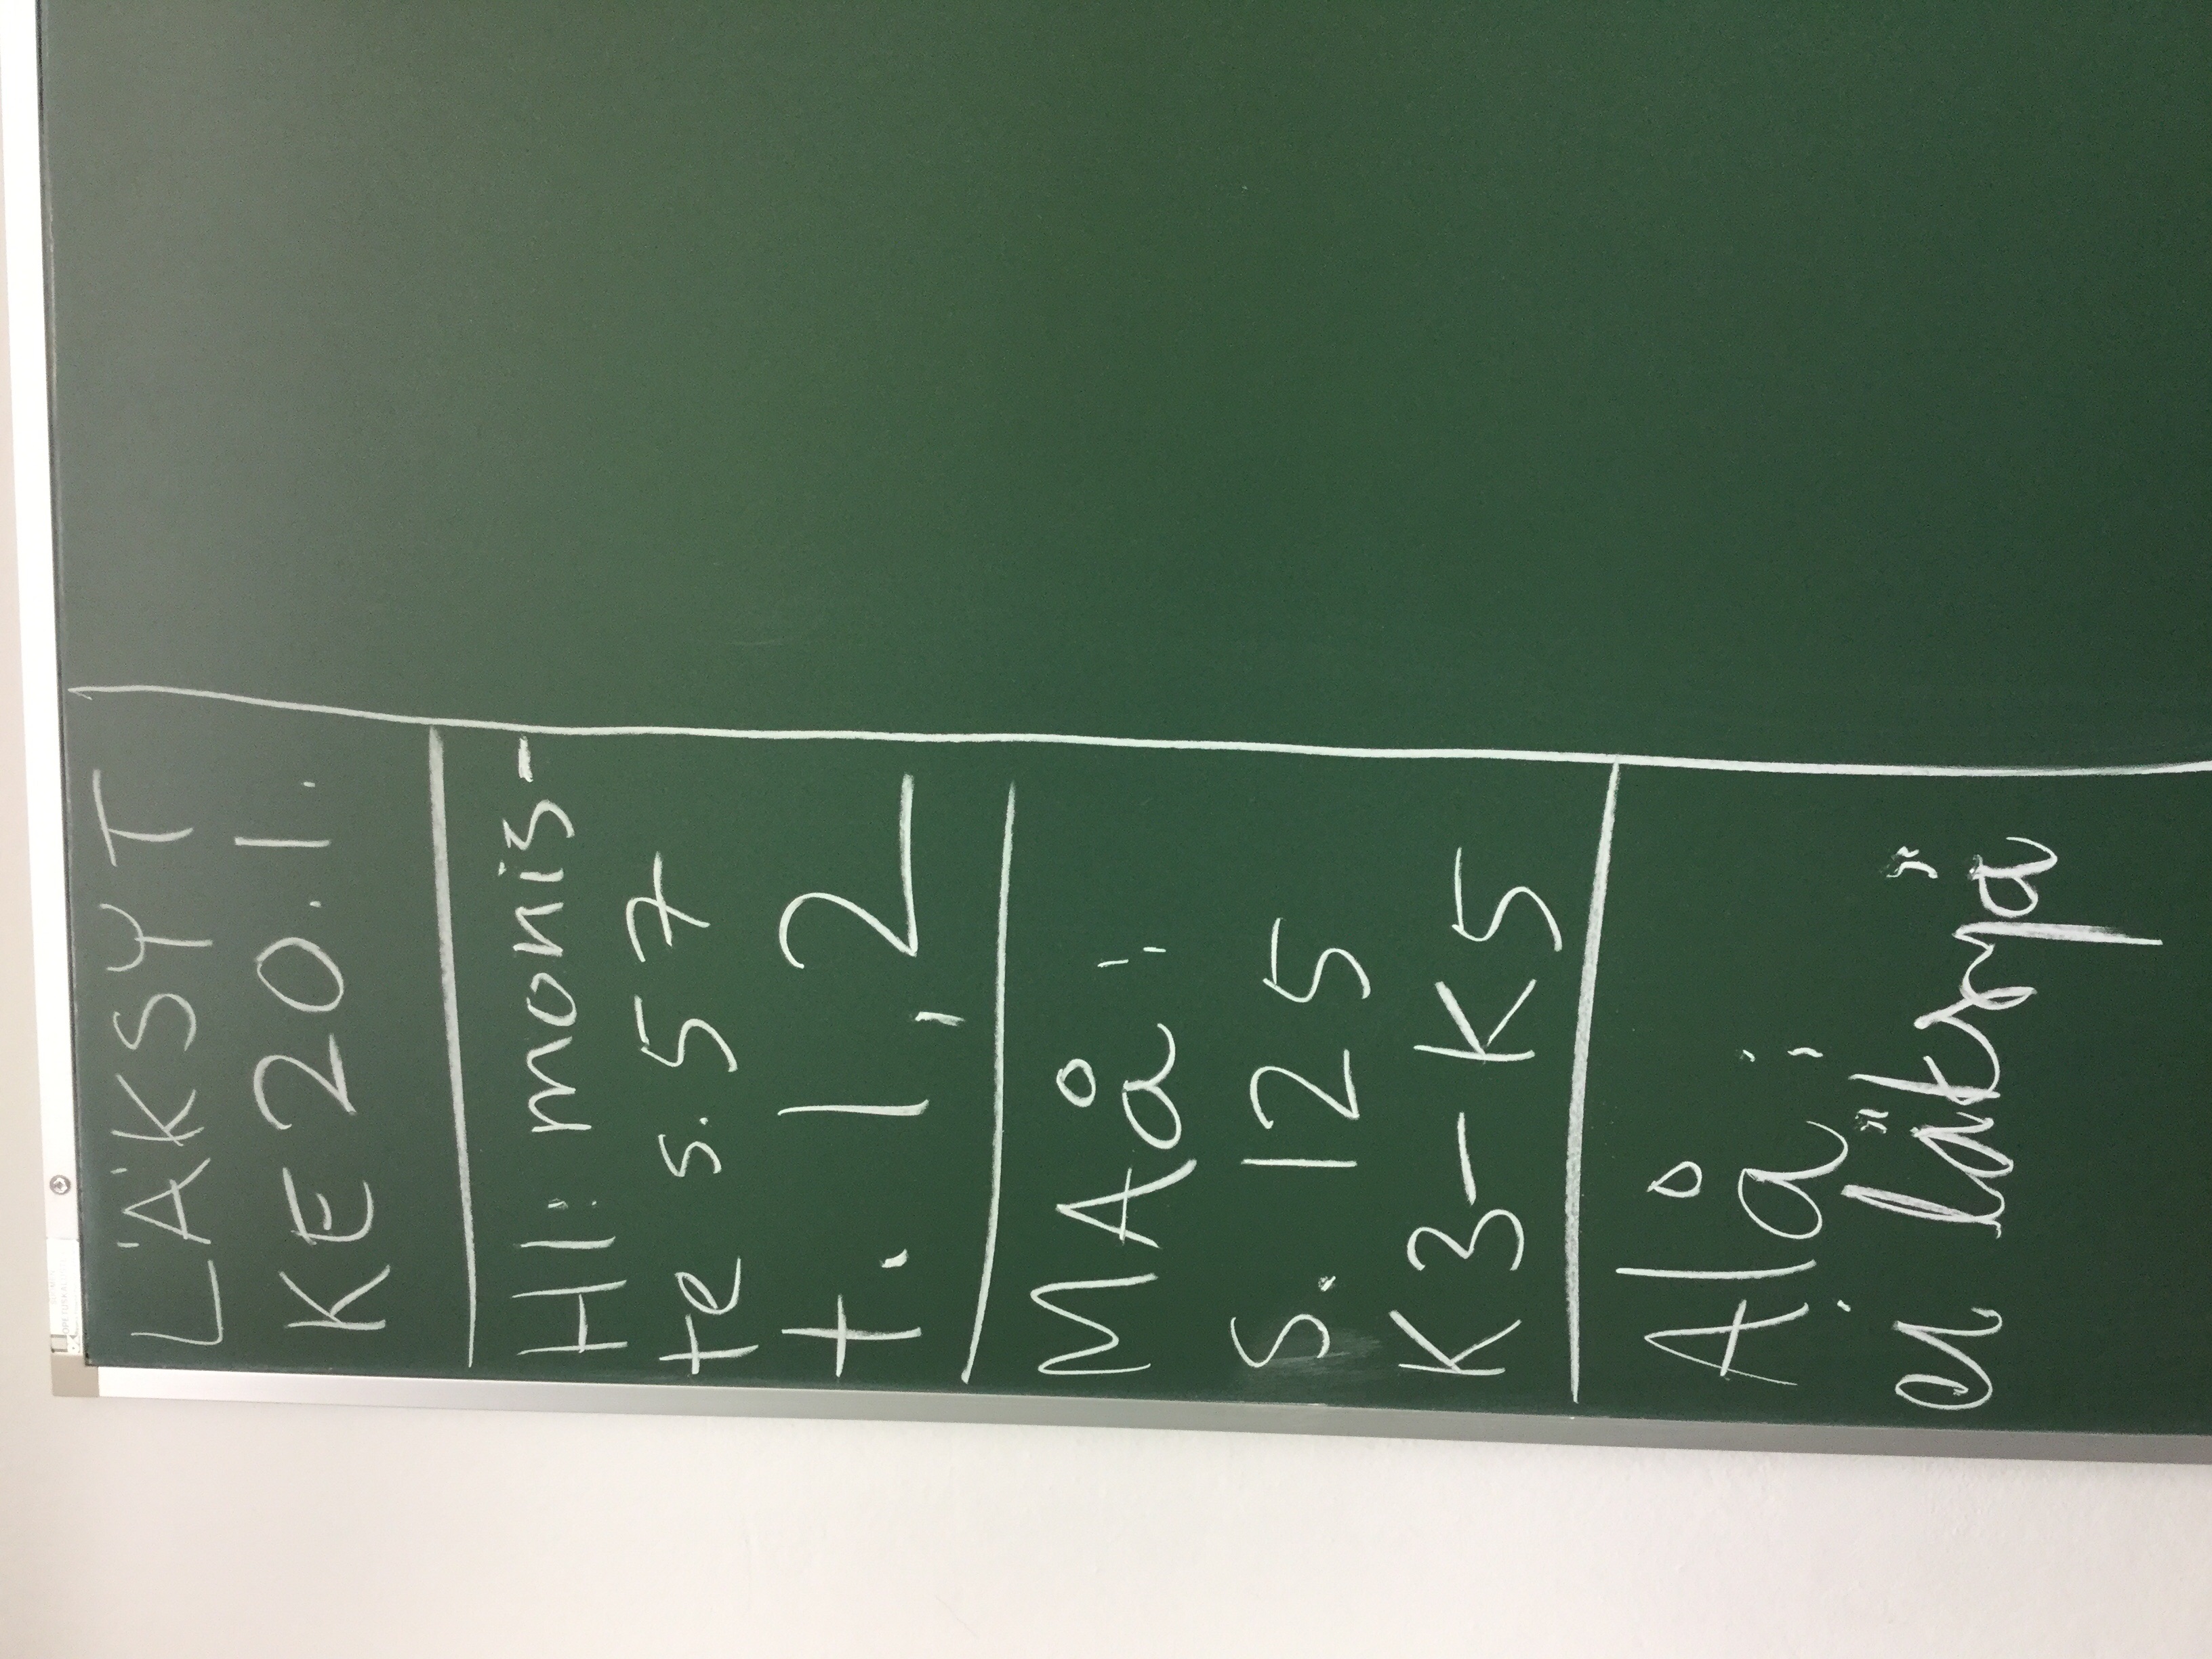 LÄKSYT
KE 20.1.
HI: monis-
te s. 57
t. 1, 2
MAå:
s. 125
K3-K5
Alå:
ei läksyä